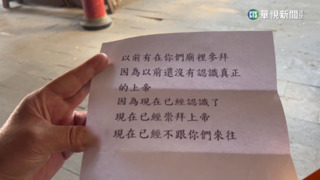 華視新聞
以前有在你們廟裡參拜
因為以前還沒有認識真正
的上帝
因為現在已經認識了
現在已經崇拜上帝
現在已經不跟你們來往